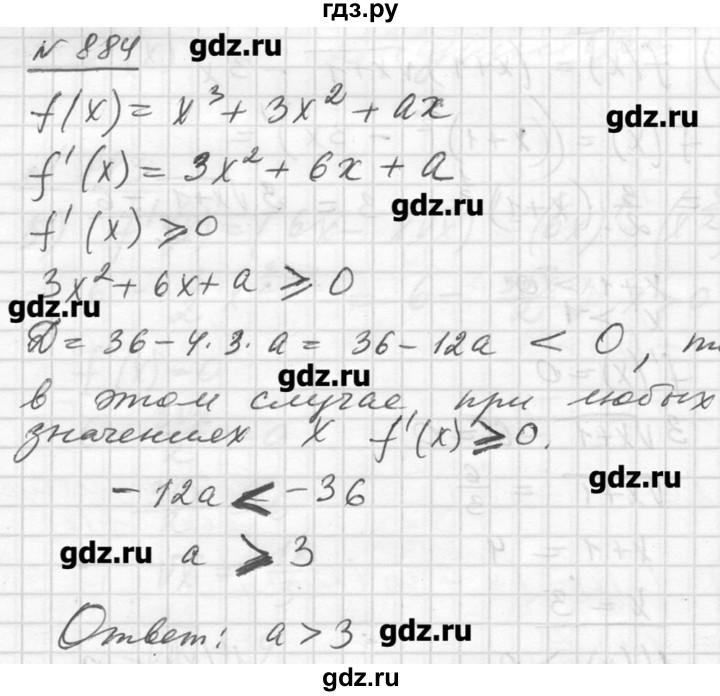 гдз.ру
№ 884
gdz.ru
f(x) = x³ + 3x² + ax
gdz.ru
f'(x) = 3x² + 6x + a
gdz.ru
f'(x) ⩾ 0
3x² + 6x + a ⩾ 0
gdz.ru
D = 36 - 4·3·a = 36 - 12a < 0,
gdz.ru
в этом случае при любых
значениях x f'(x) ⩾ 0.
gdz.ru
-12a < -36
gdz.ru
a > 3
Ответ: a > 3
gdz.ru
gdz.ru